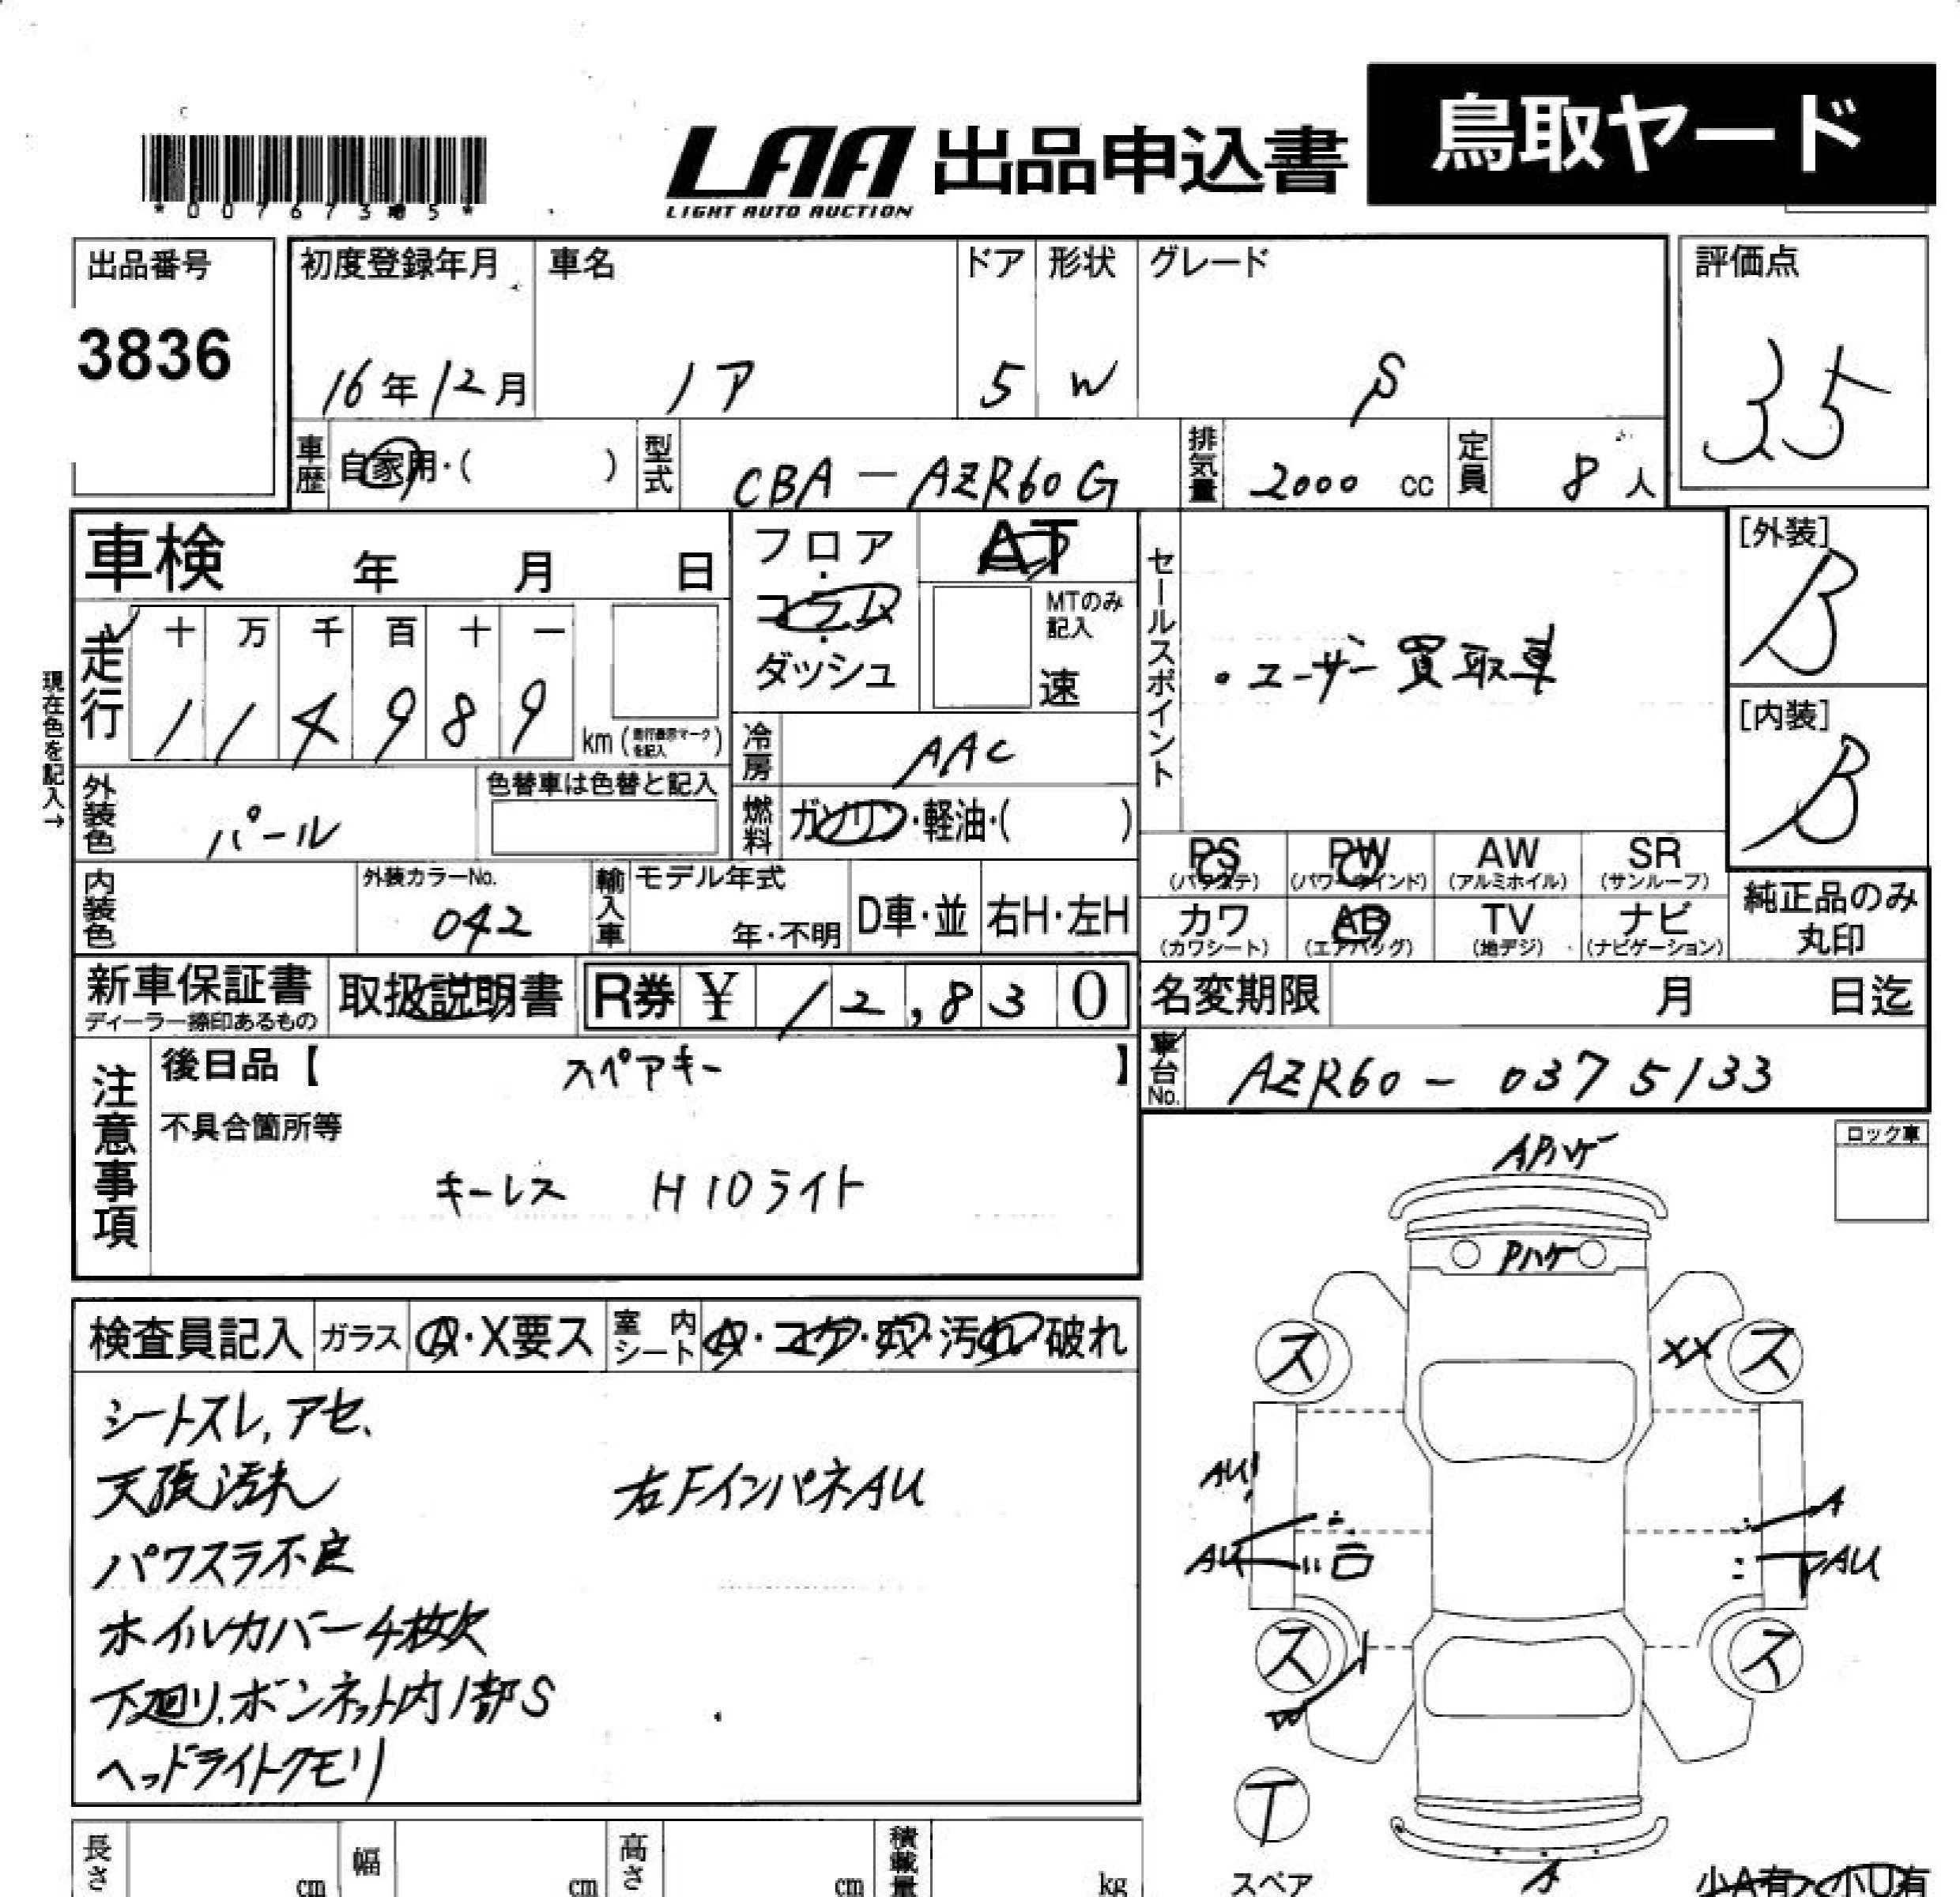 鳥取ヤード
LAA 出品申込書
LIGHT AUTO AUCTION
出品番号 3836
初度登録年月 16年12月
車名 ノア
ドア 5
形状 W
グレード S
評価点 3.5
車歴 自家用・( )
型式 CBA-AZR60G
排気量 2000 cc
定員 8人
車検 年 月 日
フロア・コラム・ダッシュ
AT
MTのみ記入 速
セールスポイント ・ユーザー買取車
[外装] B
[内装] B
現在色を記入→
走行 十 万 千 百 十 一
114989 km (走行表示マークを記入)
冷房 AAC
外装色 パール
色替車は色替と記入
燃料 ガソリン・軽油・( )
PS (パワステ)
PW (パワーウインド)
AW (アルミホイル)
SR (サンルーフ)
カワ (カワシート)
AB (エアバッグ)
TV (地デジ)
ナビ (ナビゲーション)
純正品のみ丸印
内装色
外装カラーNo. 042
輸入車 モデル年式 年・不明
D車・並
右H・左H
新車保証書
ディーラー捺印あるもの
取扱説明書
R券 ¥ 12,830
名変期限 月 日迄
車台No. AZR60-0375133
注意事項
後日品【 スペアキー 】
不具合箇所等
キーレス HIDライト
ロック車
検査員記入
ガラス A・X要ス
室内シート A・コゲ・穴・汚れ・破れ
シートスレ,アセ、
天張汚れ
右FインパネAU
パワスラ不良
ホイルカバー4枚欠
下廻り、ボンネット内1部S
ヘッドライトクモリ
APハゲ
Pハゲ
ス
XX ス
AU
A
AU
AU
ス
ス
W
T
スペア
A
小A有 小U有
長さ cm
幅 cm
高さ cm
積載量 kg